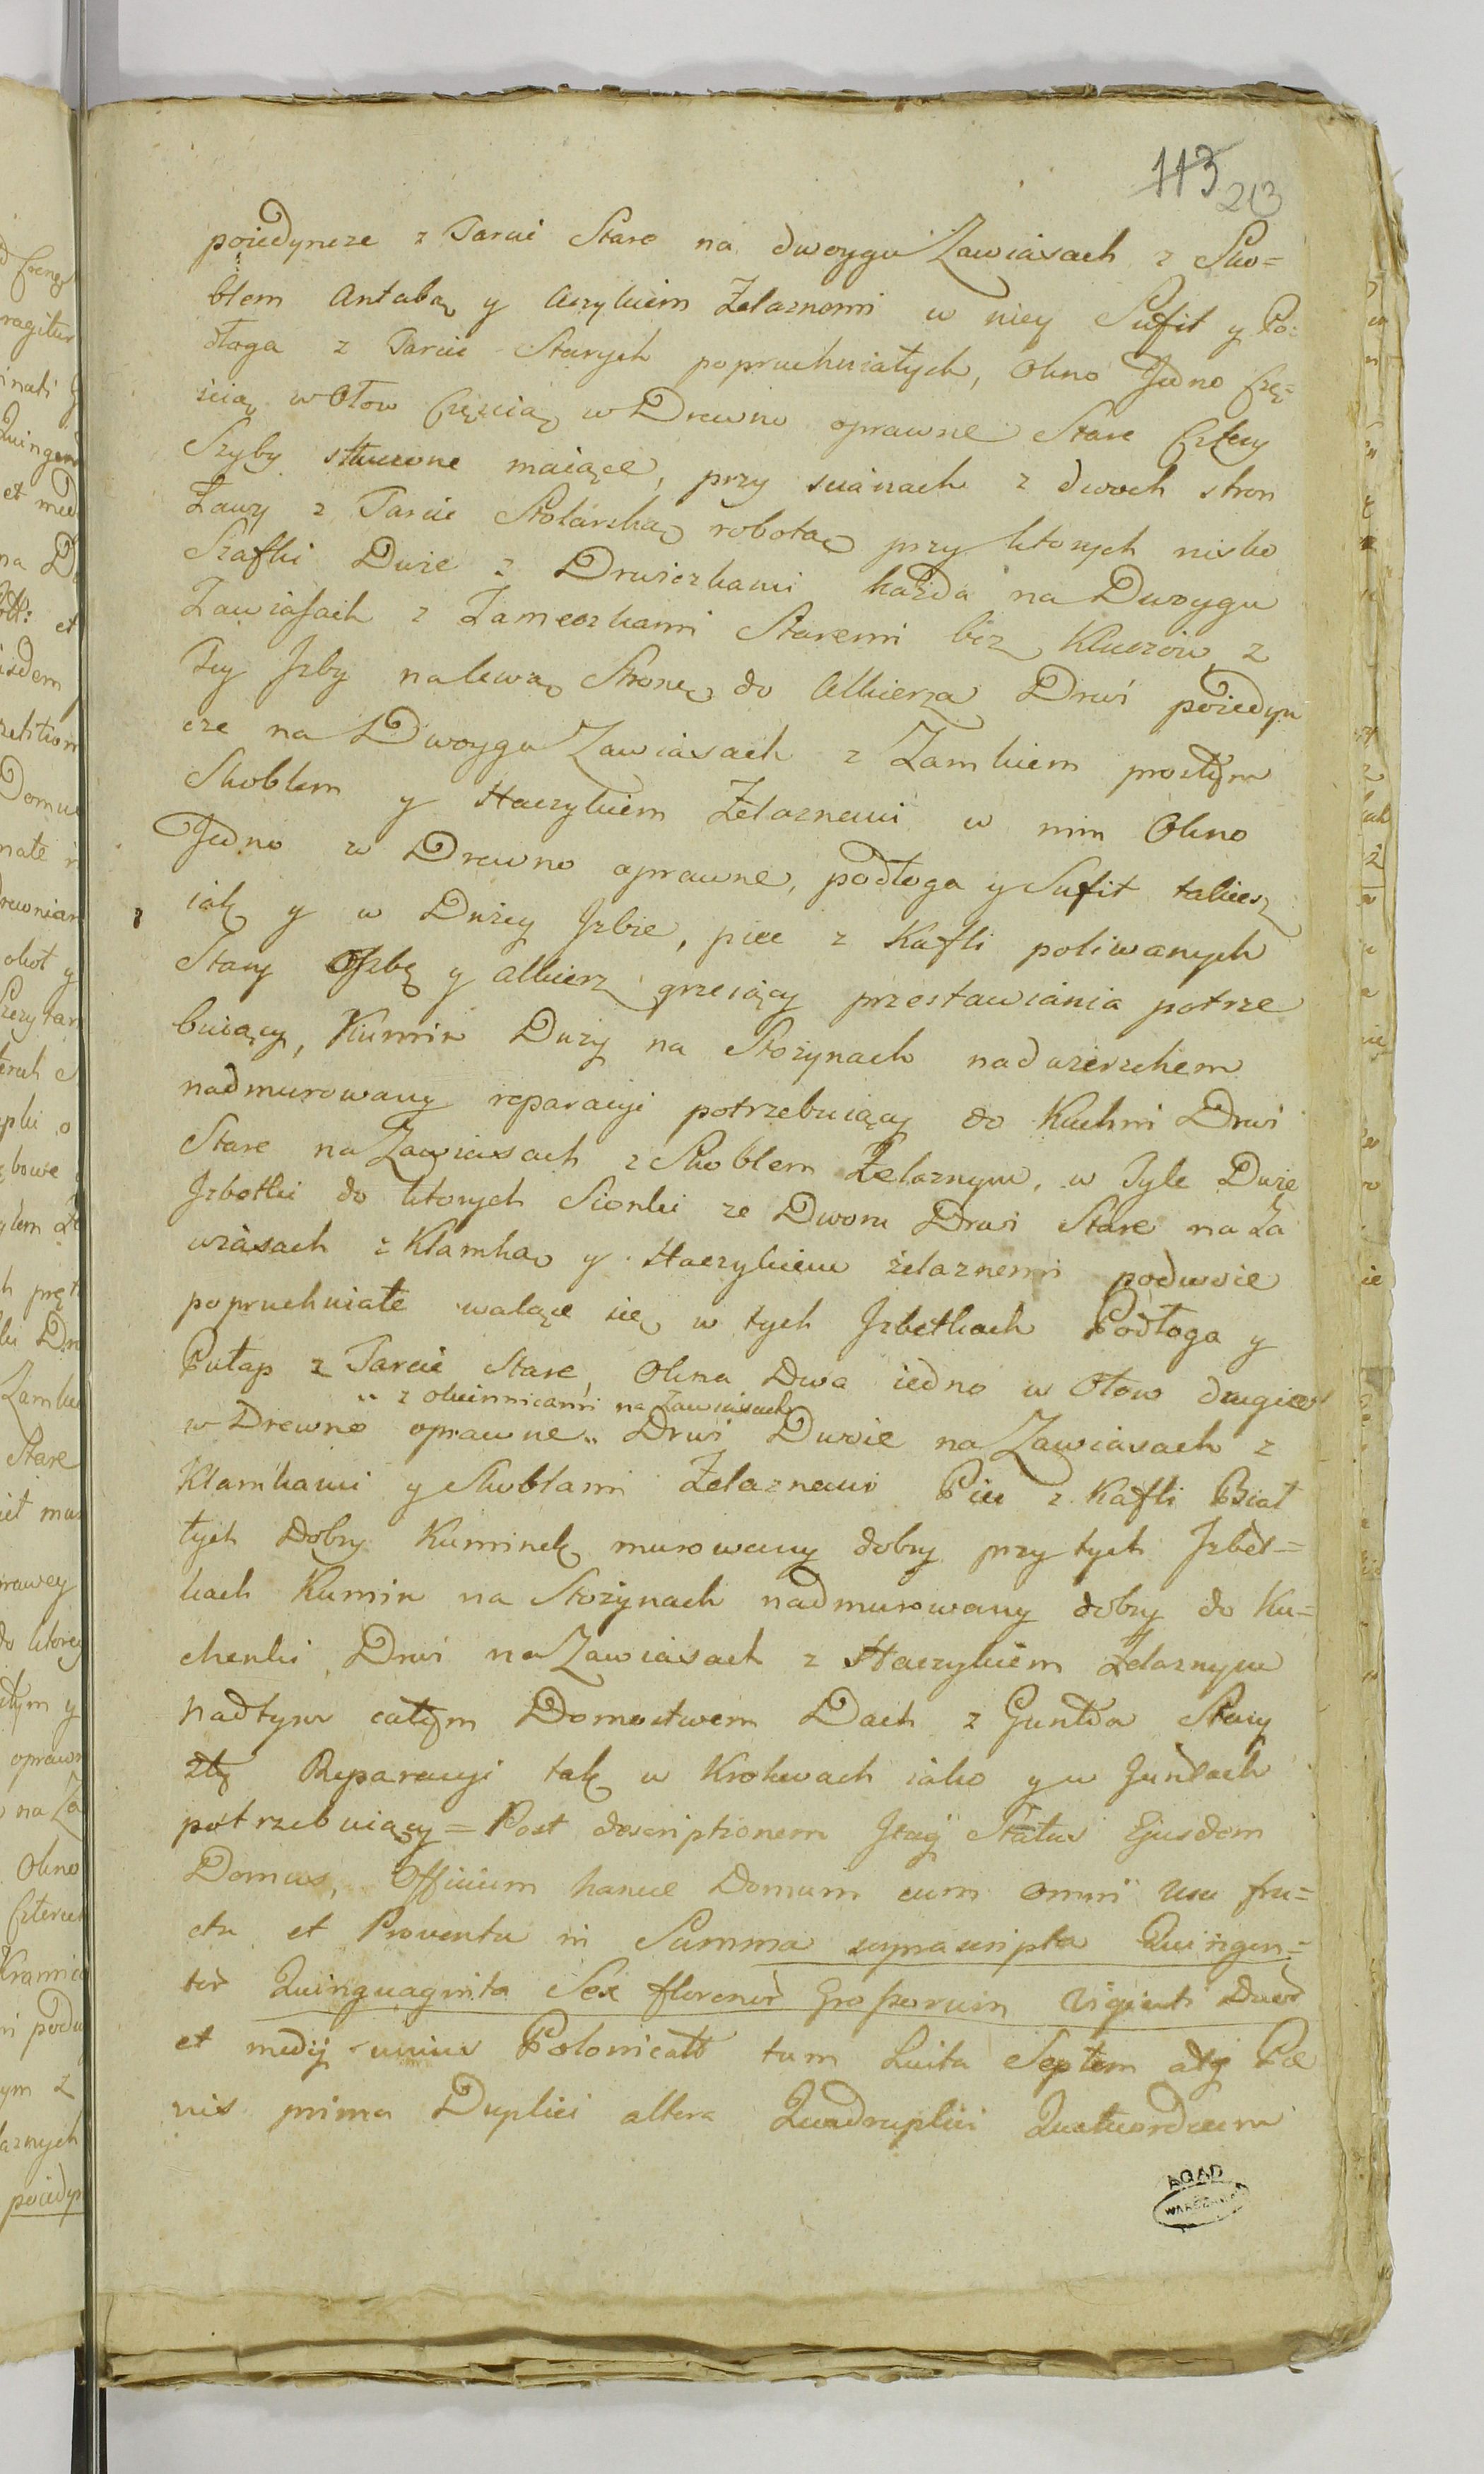 113 213
poiedyncze z Tarcic Stare na dwoygu Zawiasach z Sko=
blem Antabą y Aczykiem Żelaznemi w niey Sufit y Po=
dłoga z Tarcic Starych popruchniałych, Okno Jedno Czę=
ścią w Ołow Częścią w Drewno oprawne Stare Cztery
Szyby stłuczone maiące, przy scianach z dwoch stron
Ławy z Tarcic Stolarską robotą przy ktorych nisko
Szafki Dwie z Drwiczkami każda na Dwoygu
Zawiasach z Zameczkami Staremi bez Kluczow, z
Tey Jzby na lewą Stronę do Alkierza Drwi poiedyn
cze na Dwoygu Zawiasach z Zamkiem prostym
Skoblem y Haczykiem Żelaznemi w nim Okno
Jedno w Drewno oprawne, podłoga y Sufit takiesz
iak y w Dużey Jzbie, piec z Kafli poliwanych
Stary Jzbę y alkierz grzeiący przestawiania potrze
buiący, Kumin Duży na Stożynach nad wierzchem
nadmurowany reparacyi potrzebuiący do Kuchni Drwi
Stare na Zawiasach z Skoblem Żelaznym, w Tyle Dwie
Jzbetki do ktorych Sionki ze Dworu Drwi Stare na Za
wiasach z Klamką y Haczykiem żelaznemi podwoie
popruchniałe walące się w tych Jzbetkach Podłoga y
Pułap z Tarcic Stare, Okna Dwa iedno w Ołow drugie
„ z okiennicami na Zawiasach
w Drewno oprawne „ Drwi Dwoie na Zawiasach z
Klamkami y Skoblami Żelaznemi Piec z Kafli Biał
łych Dobry Kuminek murowany dobry przy tych Jzbet=
kach Kumin na Stożynach nadmurowany dobry do Ku=
chenki Drwi na Zawiasach z Haczykiem Żelaznym
nad tym całym Domostwem Dach z Guntow Stary
zły Reparacyi tak w Krokwach iako y w Guntach
potrzebuiący = Post descriptionem Jtaq Status Ejusdem
Domus, Officium hance Domum cum omni usu fru=
ctu et Proventu in Summa suprascripta Quingen=
tor Quinquaginta Sex florenor Grossorum viginti Duor
et medij unius Polonicall tum Luita Septem atq Pœ
nis prima Duplici altera Quadruplici Quatuordecim
AGAD
WARSZAWA